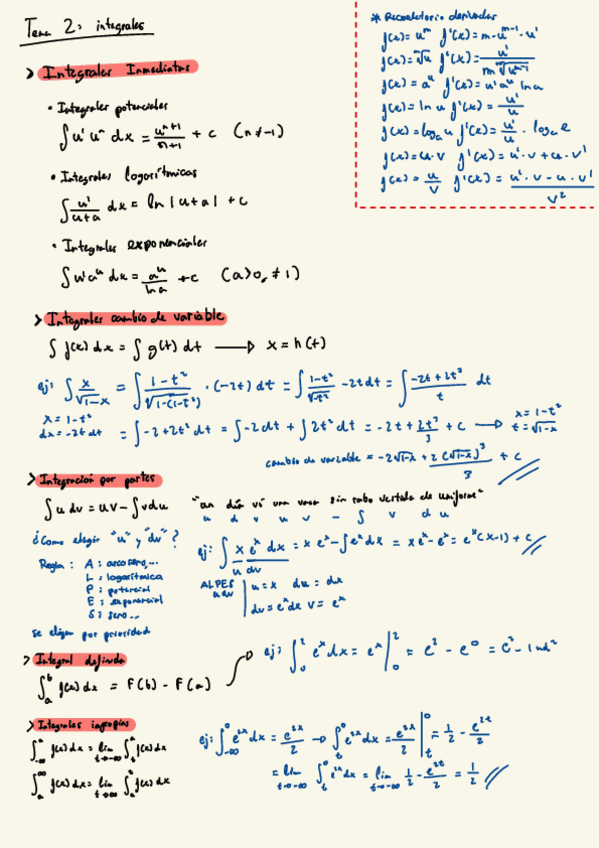 Tema 2: integrales
* Recordatorio derivadas
f(x) = u^m f'(x) = m·u^(m-1)·u'
f(x) = ᵐ√u f'(x) = u' / (m ᵐ√(u^(m-1)))
f(x) = a^u f'(x) = u' a^u ln a
f(x) = ln u f'(x) = u'/u
f(x) = log_a u f'(x) = u'/u · log_a e
f(x) = u·v f'(x) = u'·v + u·v'
f(x) = u/v f'(x) = (u'·v - u·v') / v²
> Integrales Inmediatas
• Integrales potenciales
∫ u' u^n dx = u^(n+1)/(n+1) + c (n ≠ -1)
• Integrales logarítmicas
∫ u'/(u+a) dx = ln |u+a| + c
• Integrales exponenciales
∫ u' a^u dx = a^u/ln a + c (a>0, ≠1)
> Integrales cambio de variable
∫ f(x) dx = ∫ g(t) dt → x = h(t)
ej: ∫ x/√(1-x) = ∫ (1-t²)/√(1-(1-t²)) · (-2t) dt = ∫ (1-t²)/√t² -2t dt = ∫ (-2t+2t³)/t dt
x = 1-t²
dx = -2t dt
= ∫ -2+2t² dt = ∫ -2dt + ∫ 2t² dt = -2t + 2t³/3 + c → x = 1-t²
t = √(1-x)
cambio de variable = -2√(1-x) + 2(√(1-x))³/3 + c
> Integración por partes
∫ u dv = uv - ∫ v du "un día vi una vaca sin rabo vestida de uniforme"
u d v u v - ∫ v du
¿Como elegir "u" y "dv"?
ej: ∫ x e^x dx = x e^x - ∫ e^x dx = x e^x - e^x = e^x (x-1) + c
u dv
Regla: A: arcoseno,...
L: logarítmica
P: potencial
E: exponencial
S: seno...
ALPES
u dv
u = x du = dx
dv = e^x dx v = e^x
se eligen por prioridad
> Integral definida
∫_a^b f(x) dx = F(b) - F(a)
ej: ∫_0^2 e^x dx = e^x |_0^2 = e² - e⁰ = e² - 1 ud²
> Integrales impropias
∫_-∞^a f(x) dx = lim t→-∞ ∫_t^a f(x) dx
∫_a^∞ f(x) dx = lim t→∞ ∫_a^t f(x) dx
ej: ∫_-∞^0 e^2x dx = e^2x/2 → ∫_t^0 e^2x dx = e^2x/2 |_t^0 = 1/2 - e^2t/2
= lim t→-∞ ∫_t^0 e^2x dx = lim t→-∞ 1/2 - e^2t/2 = 1/2